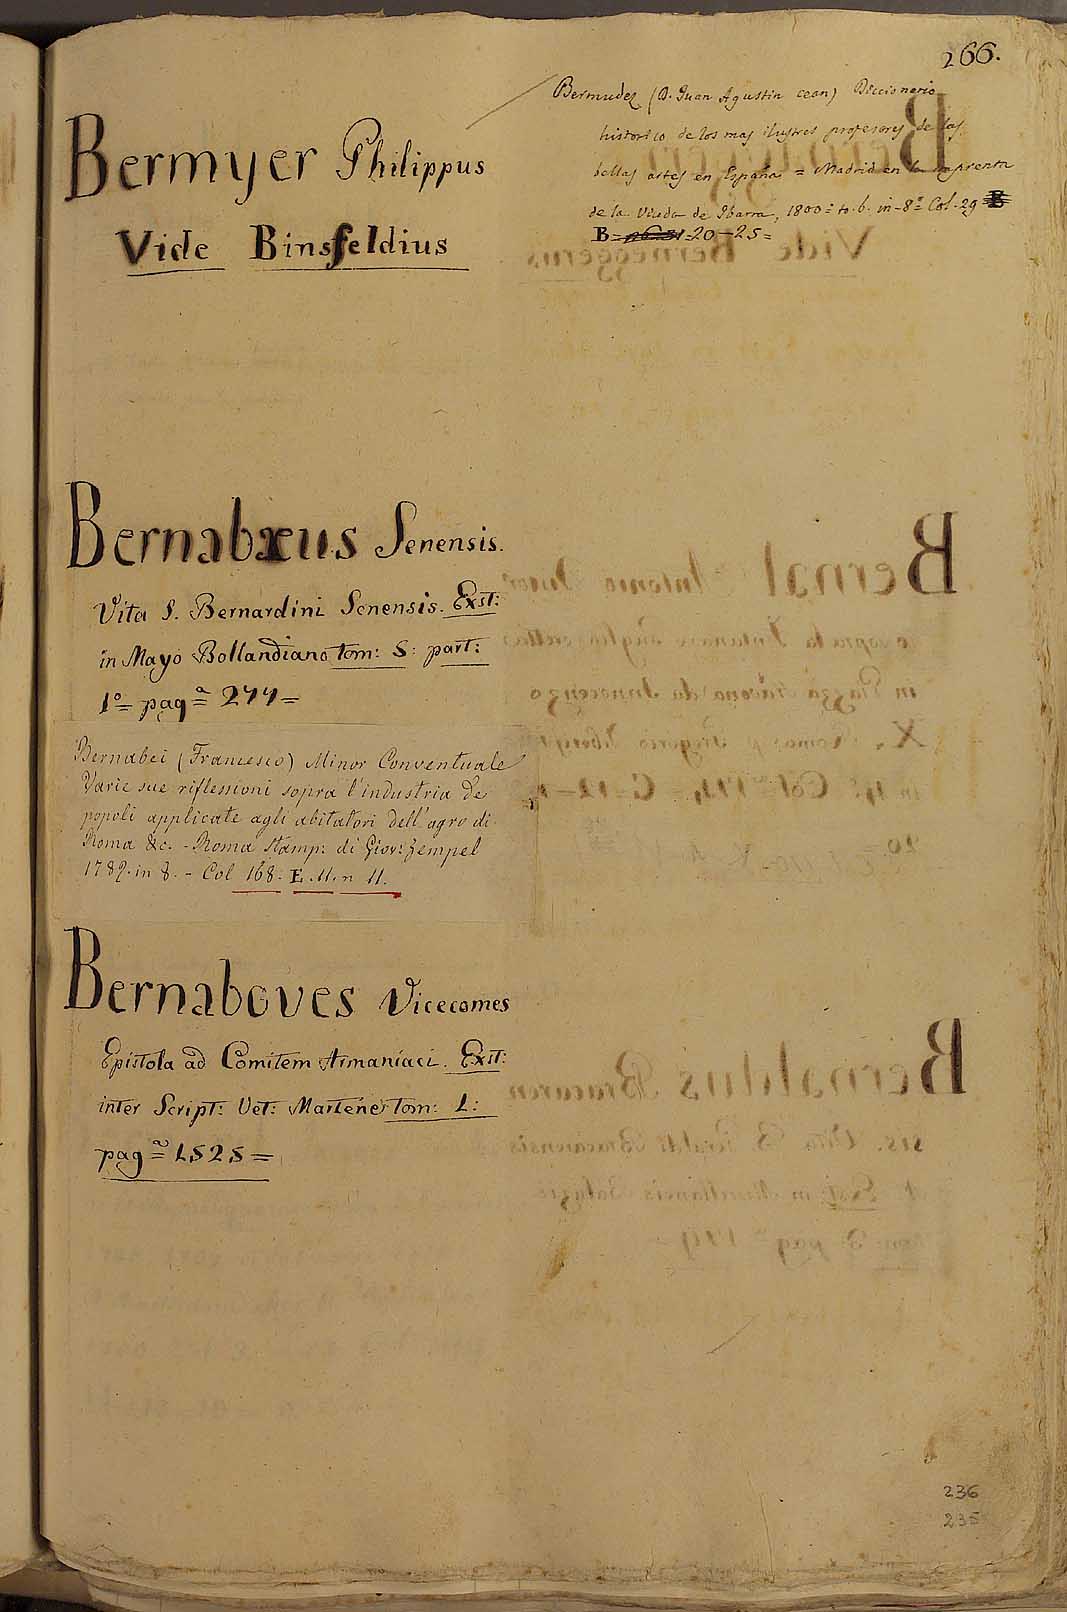 266.
Bermyer Philippus
Vide Binsfeldius
Bermudez (D. Juan Agustin cean) Diccionario
historico de los mas ilustres profesores de las
bellas artes en España = Madrid en la imprenta
de la Viuda de Ibarra, 1800 = to. 6. in-8º Col. 29
B= 20-25=
Bernabæus Senensis.
Vita S. Bernardini Senensis. Exst:
in Mayo Bollandiano tom: 5: part:
1º= pagª= 277=
Bernabei (Francesco) Minor Conventuale
Varie sue riflessioni sopra l'industria de
popoli applicate agli abitatori dell'agro di
Roma &c. - Roma stamp: di Giov: Zempel
1782. in 8. - Col 168. E. 11. n 11.
Bernaboves Vicecomes
Epistola ad Comitem Armaniaci. Exst:
inter Script: Vet: Martene tom: 1:
pagª= 1525=
236
235